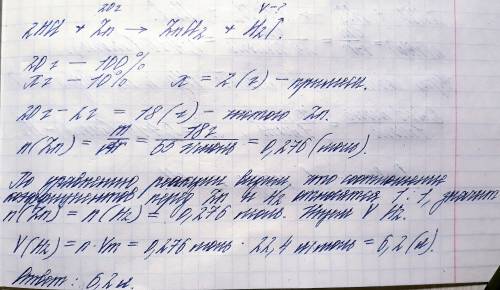 20г V-?
2HCl + Zn → ZnCl2 + H2↑.
20г – 100%
xг – 10% x = 2 (г) – примеси.
20г – 2г = 18 (г) – чистого Zn.
n(Zn) = m/M = 18г/65 г/моль = 0,276 (моль).
По уравнению реакции видим, что соотношение
коэффициентов перед Zn и H2 относятся 1:1, значит
n(Zn) = n(H2) = 0,276 моль. Ищем V H2.
V(H2) = n · Vm = 0,276 моль · 22,4 л/моль = 6,2 (л).
Ответ: 6,2 л.